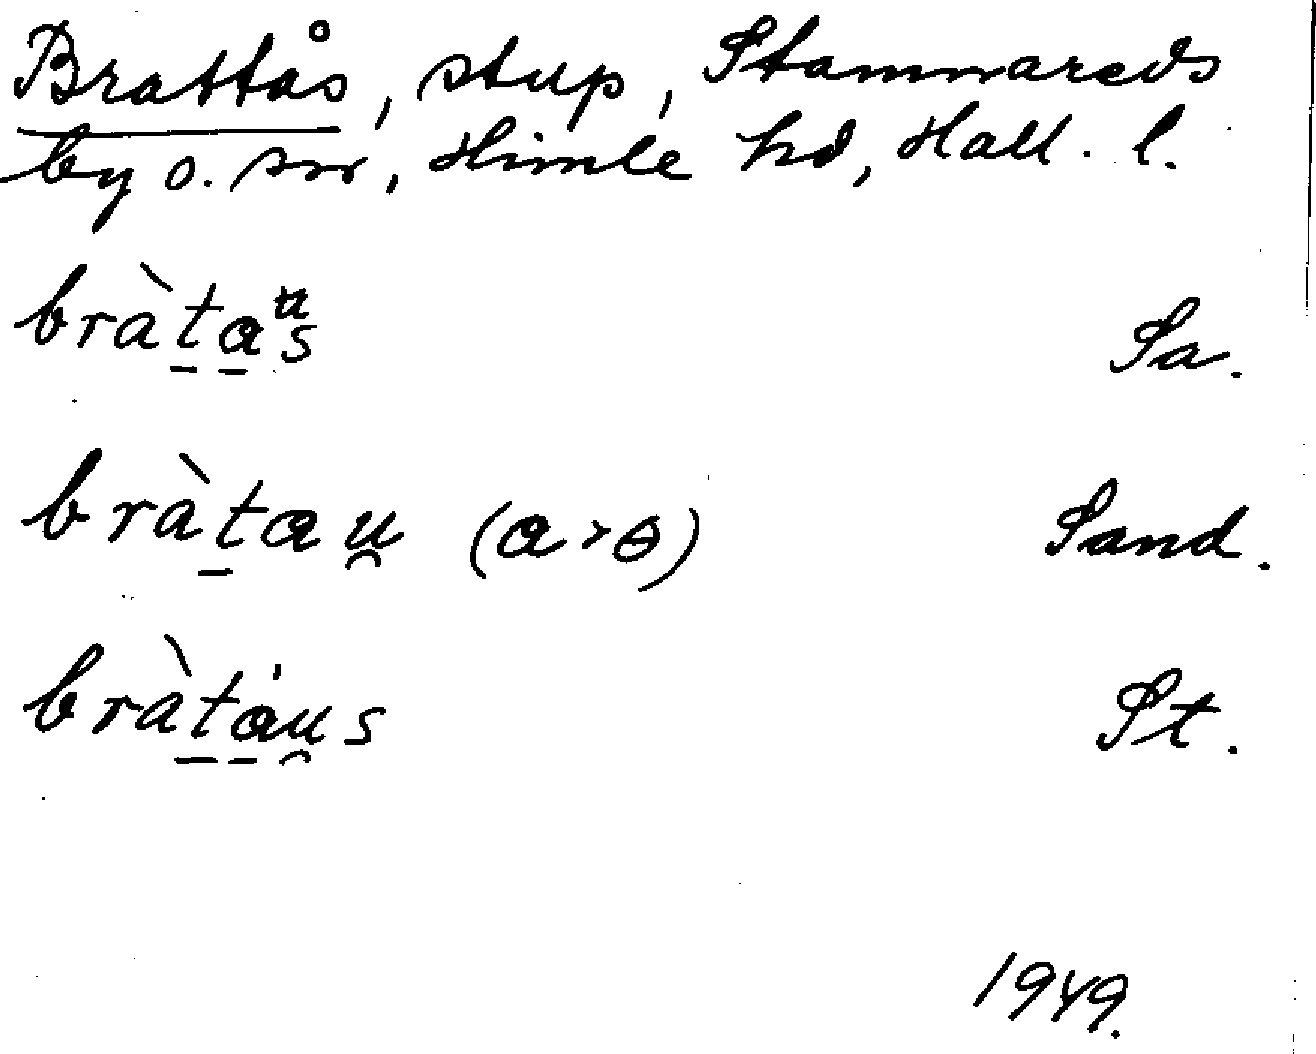 Brattås, stup, Stamnareds
by o. sn, Himle hd, Hall. l.
bràtaᵘs Sa.
bràtau̯ (a>ɵ) Sand.
bràtáu̯s St.
1949.